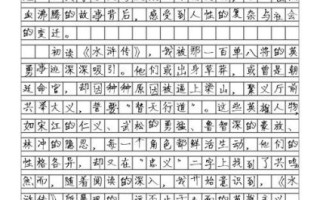 血沸腾的故事背后，感受到人性的复杂与社会
的变迁。
初读《水浒传》，我被那一百单八将的英
勇事迹深深吸引。他们或出身草莽，或曾是朝
廷命官，却因种种原因被逼上梁山，聚义厅前
共举大义，誓要“替天行道”。这些英雄人物
如宋江的仁义、武松的勇猛、鲁智深的豪放、
林冲的隐忍，每一个角色都鲜活生动，他们的
性格各异，却又在“忠义”二字上找到了共鸣
然而，随着阅读的深入，我开始意识到，《水
浒传》